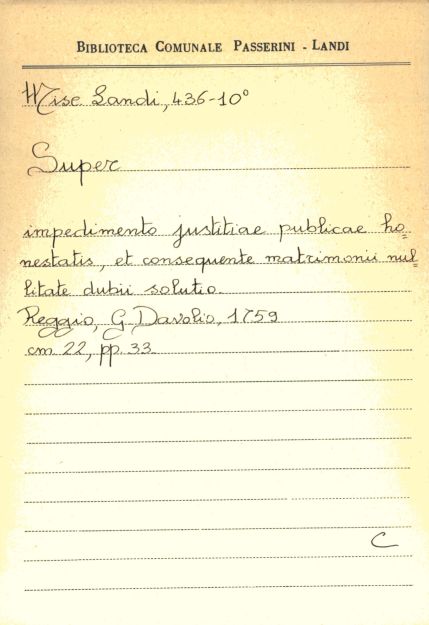 BIBLIOTECA COMUNALE PASSERINI - LANDI
Misc Landi, 436-10°
Super
impedimento justitiae publicae ho=
nestatis, et consequente matrimonii nul=
litate dubii solutio
Reggio, G. Davolio, 1759
cm 22, pp. 33
C